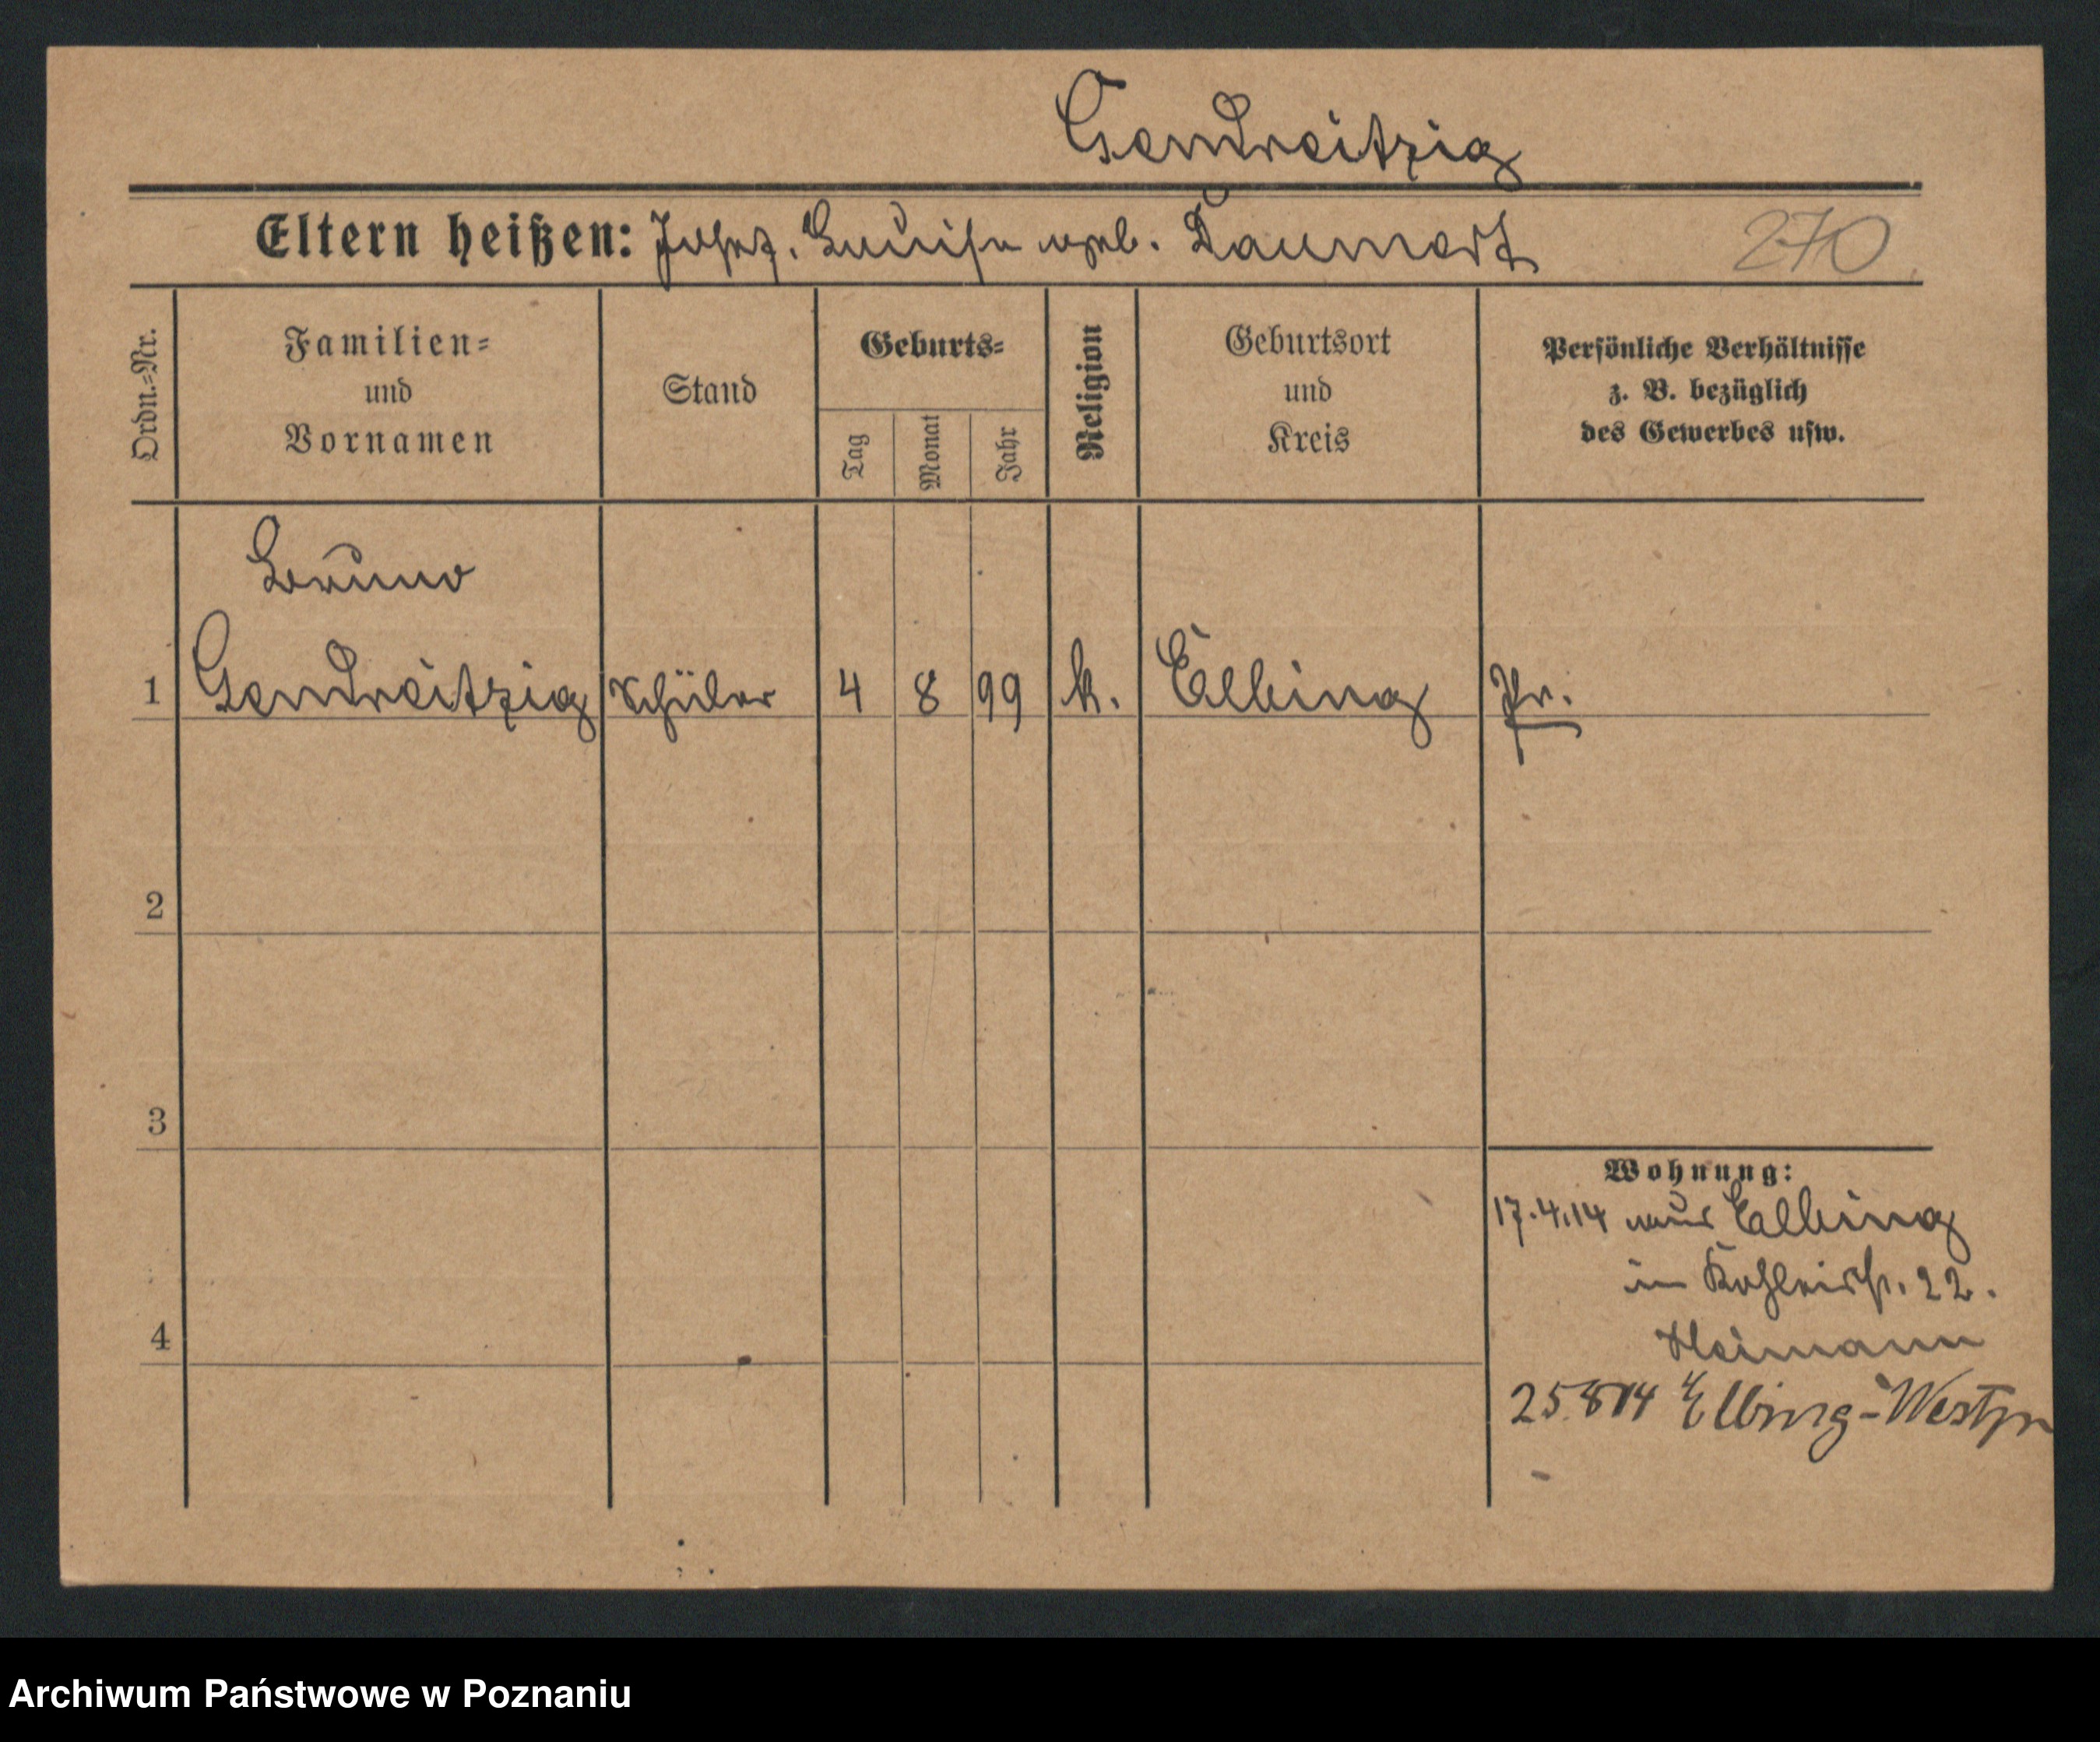 Gendreitzig
Eltern heißen: Josef, Luise geb. Taumert 270
Ordn.-Nr.
Familien-
und
Vornamen
Stand
Geburts-
Tag
Monat
Jahr
Religion
Geburtsort
und
Kreis
Persönliche Verhältnisse
z. B. bezüglich
des Gewerbes usw.
Bruno
1 Gendreitzig Schüler 4 8 99 k. Elbing Pr.
2
3
Wohnung:
17.4.14 aus Elbing
in 22.
4
Heimann
25.8 14 Elbing-Westpr
Archiwum Państwowe w Poznaniu